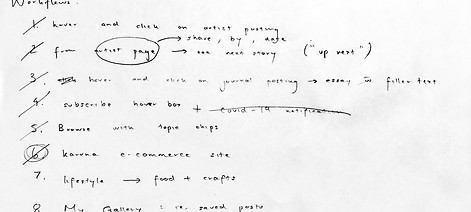 Workflows:
1. hover and click on artist posting
share, by, date
2. from artist page → see next story ("up next")
3. hover and click on journal posting → essay w filler text
4. subscribe hover box + covid-19 notification
5. Browse with topic chips
6. karuna e-commerce site
7. lifestyle → food + crafts
8. My Gallery : i.e. saved posts